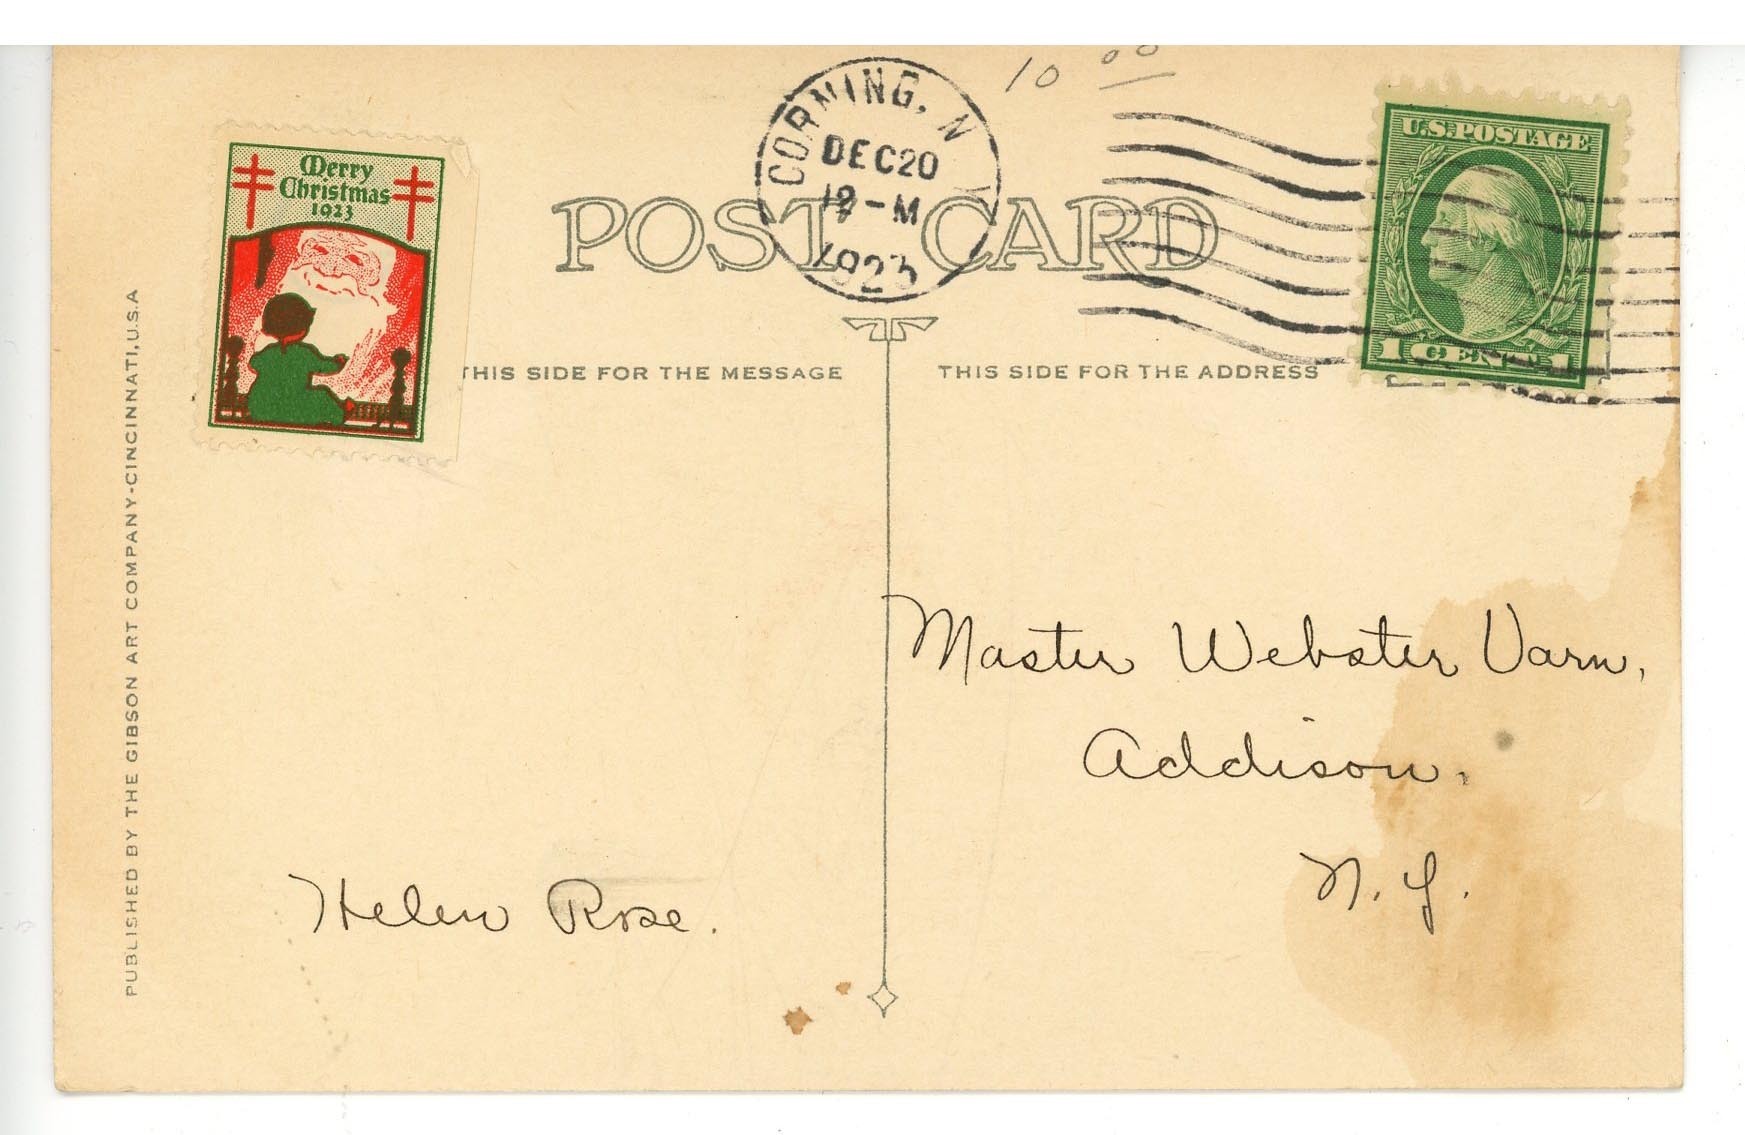 10 00
CORNING, N Y
DEC 20
12-M
1923
U.S. POSTAGE
1 CENT 1
Merry
Christmas
1923
POST CARD
THIS SIDE FOR THE MESSAGE
THIS SIDE FOR THE ADDRESS
PUBLISHED BY THE GIBSON ART COMPANY-CINCINNATI, U.S.A
Master Webster Varn,
Addison.
N. Y.
Helen Rose.